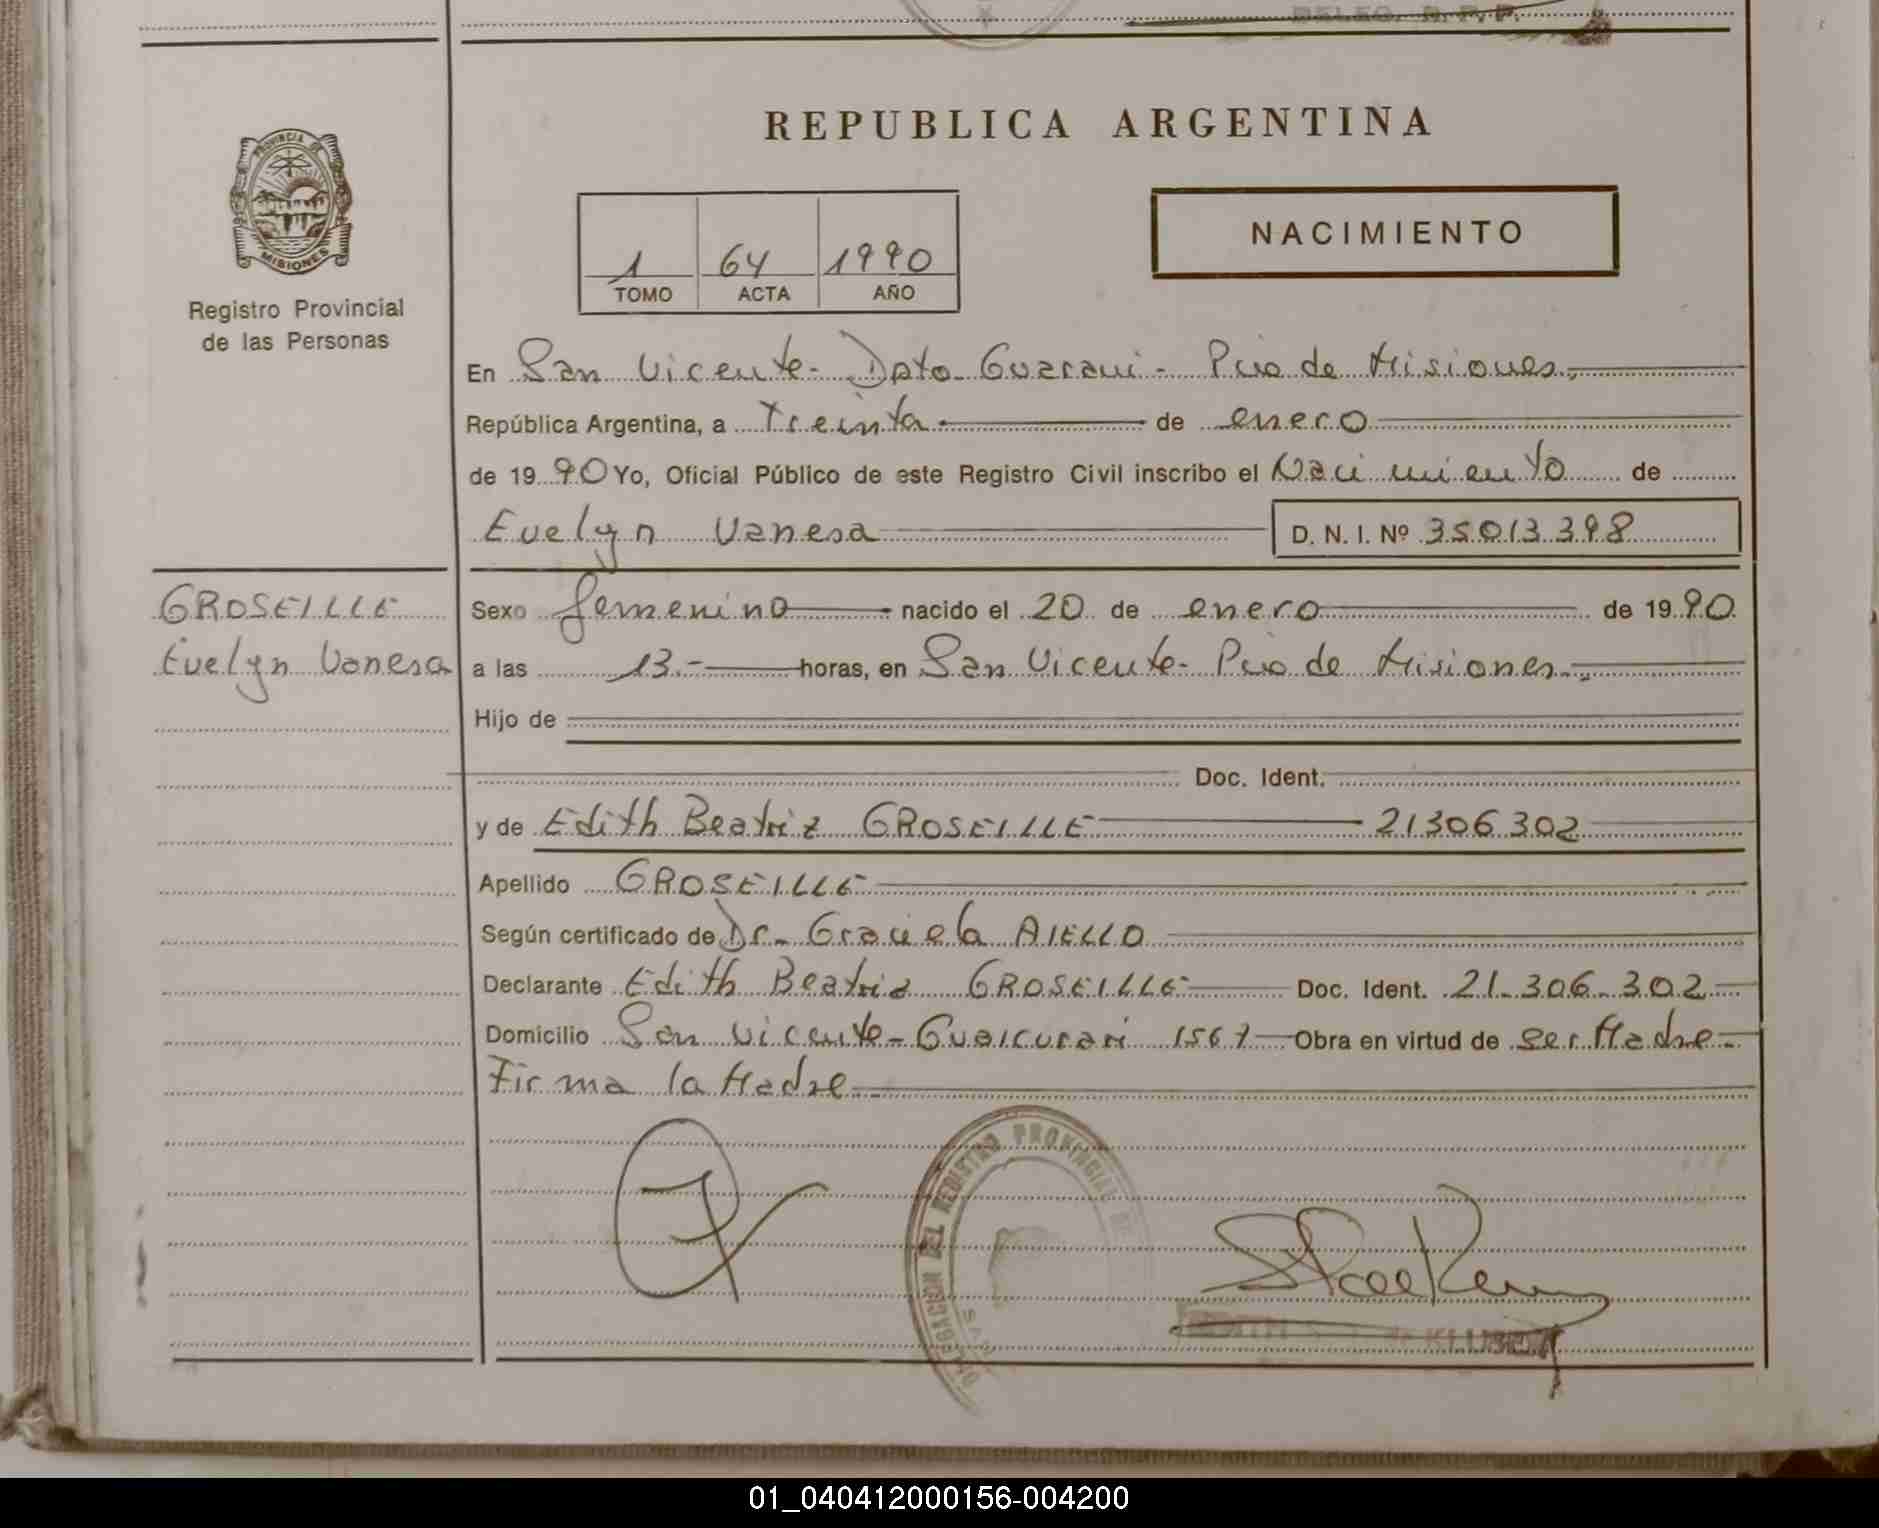 DELEG. R. P. P.
REPUBLICA ARGENTINA
PROVINCIA DE
MISIONES
Registro Provincial
de las Personas
NACIMIENTO
1 64 1990
TOMO ACTA AÑO
En San Vicente- Dpto Guarani- Pcia de Misiones.-
República Argentina, a Treinta de enero
de 1990 Yo, Oficial Público de este Registro Civil inscribo el Nacimiento de
Evelyn Vanesa D. N. I. Nº 35013398
GROSEILLE
Evelyn Vanesa
Sexo femenino nacido el 20 de enero de 1990
a las 13.- horas, en San Vicente- Pcia de Misiones.-
Hijo de
Doc. Ident.
y de Edith Beatriz GROSEILLE 21306302
Apellido GROSEILLE
Según certificado de Dr. Graciela AIELLO
Declarante Edith Beatriz GROSEILLE Doc. Ident. 21.306.302
Domicilio San Vicente- Guaicurari 1567 Obra en virtud de ser Madre-
Firma la Madre
DELEGACION DEL REGISTRO PROVINCIAL DE
01_040412000156-004200